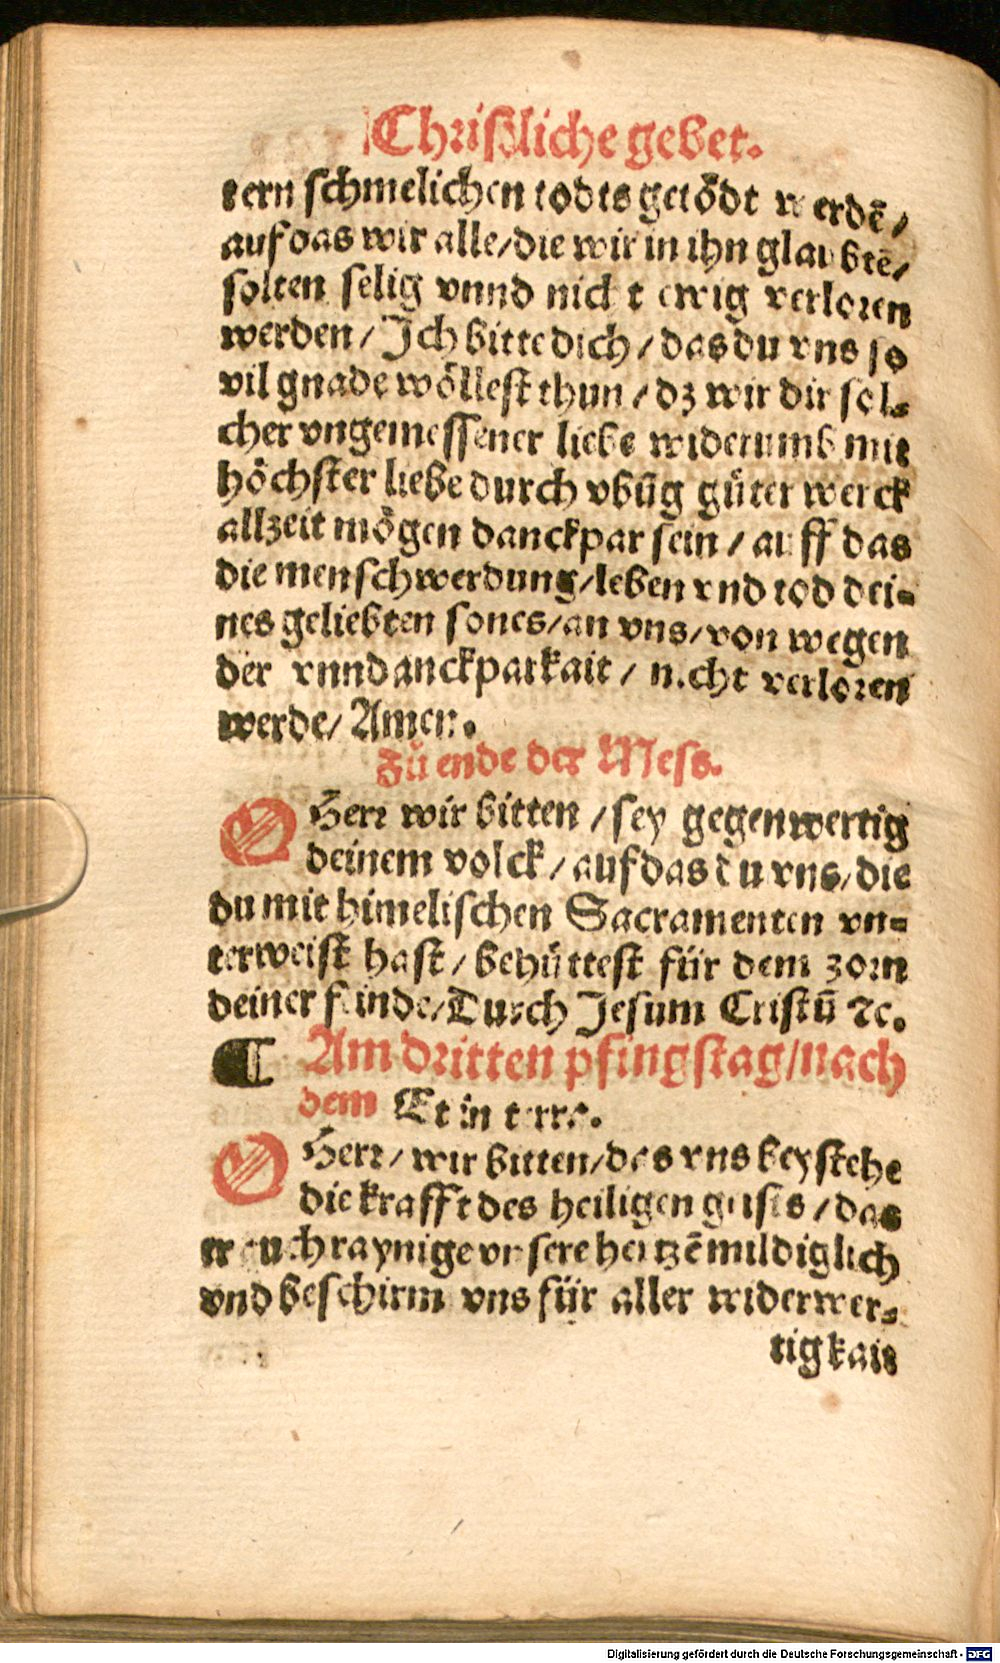 Christliche gebet.
tern schmelichen todts getödt werdē /
auf das wir alle / die wir in ihn glaubtē /
solten selig vnnd nicht ewig verloren
werden / Ich bitte dich / das du vns so
vil gnade wöllest thun / dz wir dir sol⸗
cher vngemessener liebe widerumb mit
höchster liebe durch vbūg gůter werck
allzeit mögen danckpar sein / auff das
die menschwerdung / leben vnd tod dei⸗
nes geliebten sones / an vns / von wegen
der vnndanckparkait / nicht verloren
werde / Amen.
Zů ende der Mess.
O Herr wir bitten / sey gegenwertig
deinem volck / auf das du vns / die
du mit himelischen Sacramenten vn⸗
terweist hast / behüttest für dem zorn
deiner feinde / Durch Jesum Cristū ꝛc.
¶ Am dritten pfingstag / nach
dem Et in terra.
O Herr / wir bitten / das vns beystehe
die krafft des heiligen geists / das
er auch raynige vnsere hertzē mildiglich
vnd beschirm vns für aller widerwer⸗
tigkait
Digitalisierung gefördert durch die Deutsche Forschungsgemeinschaft - DFG